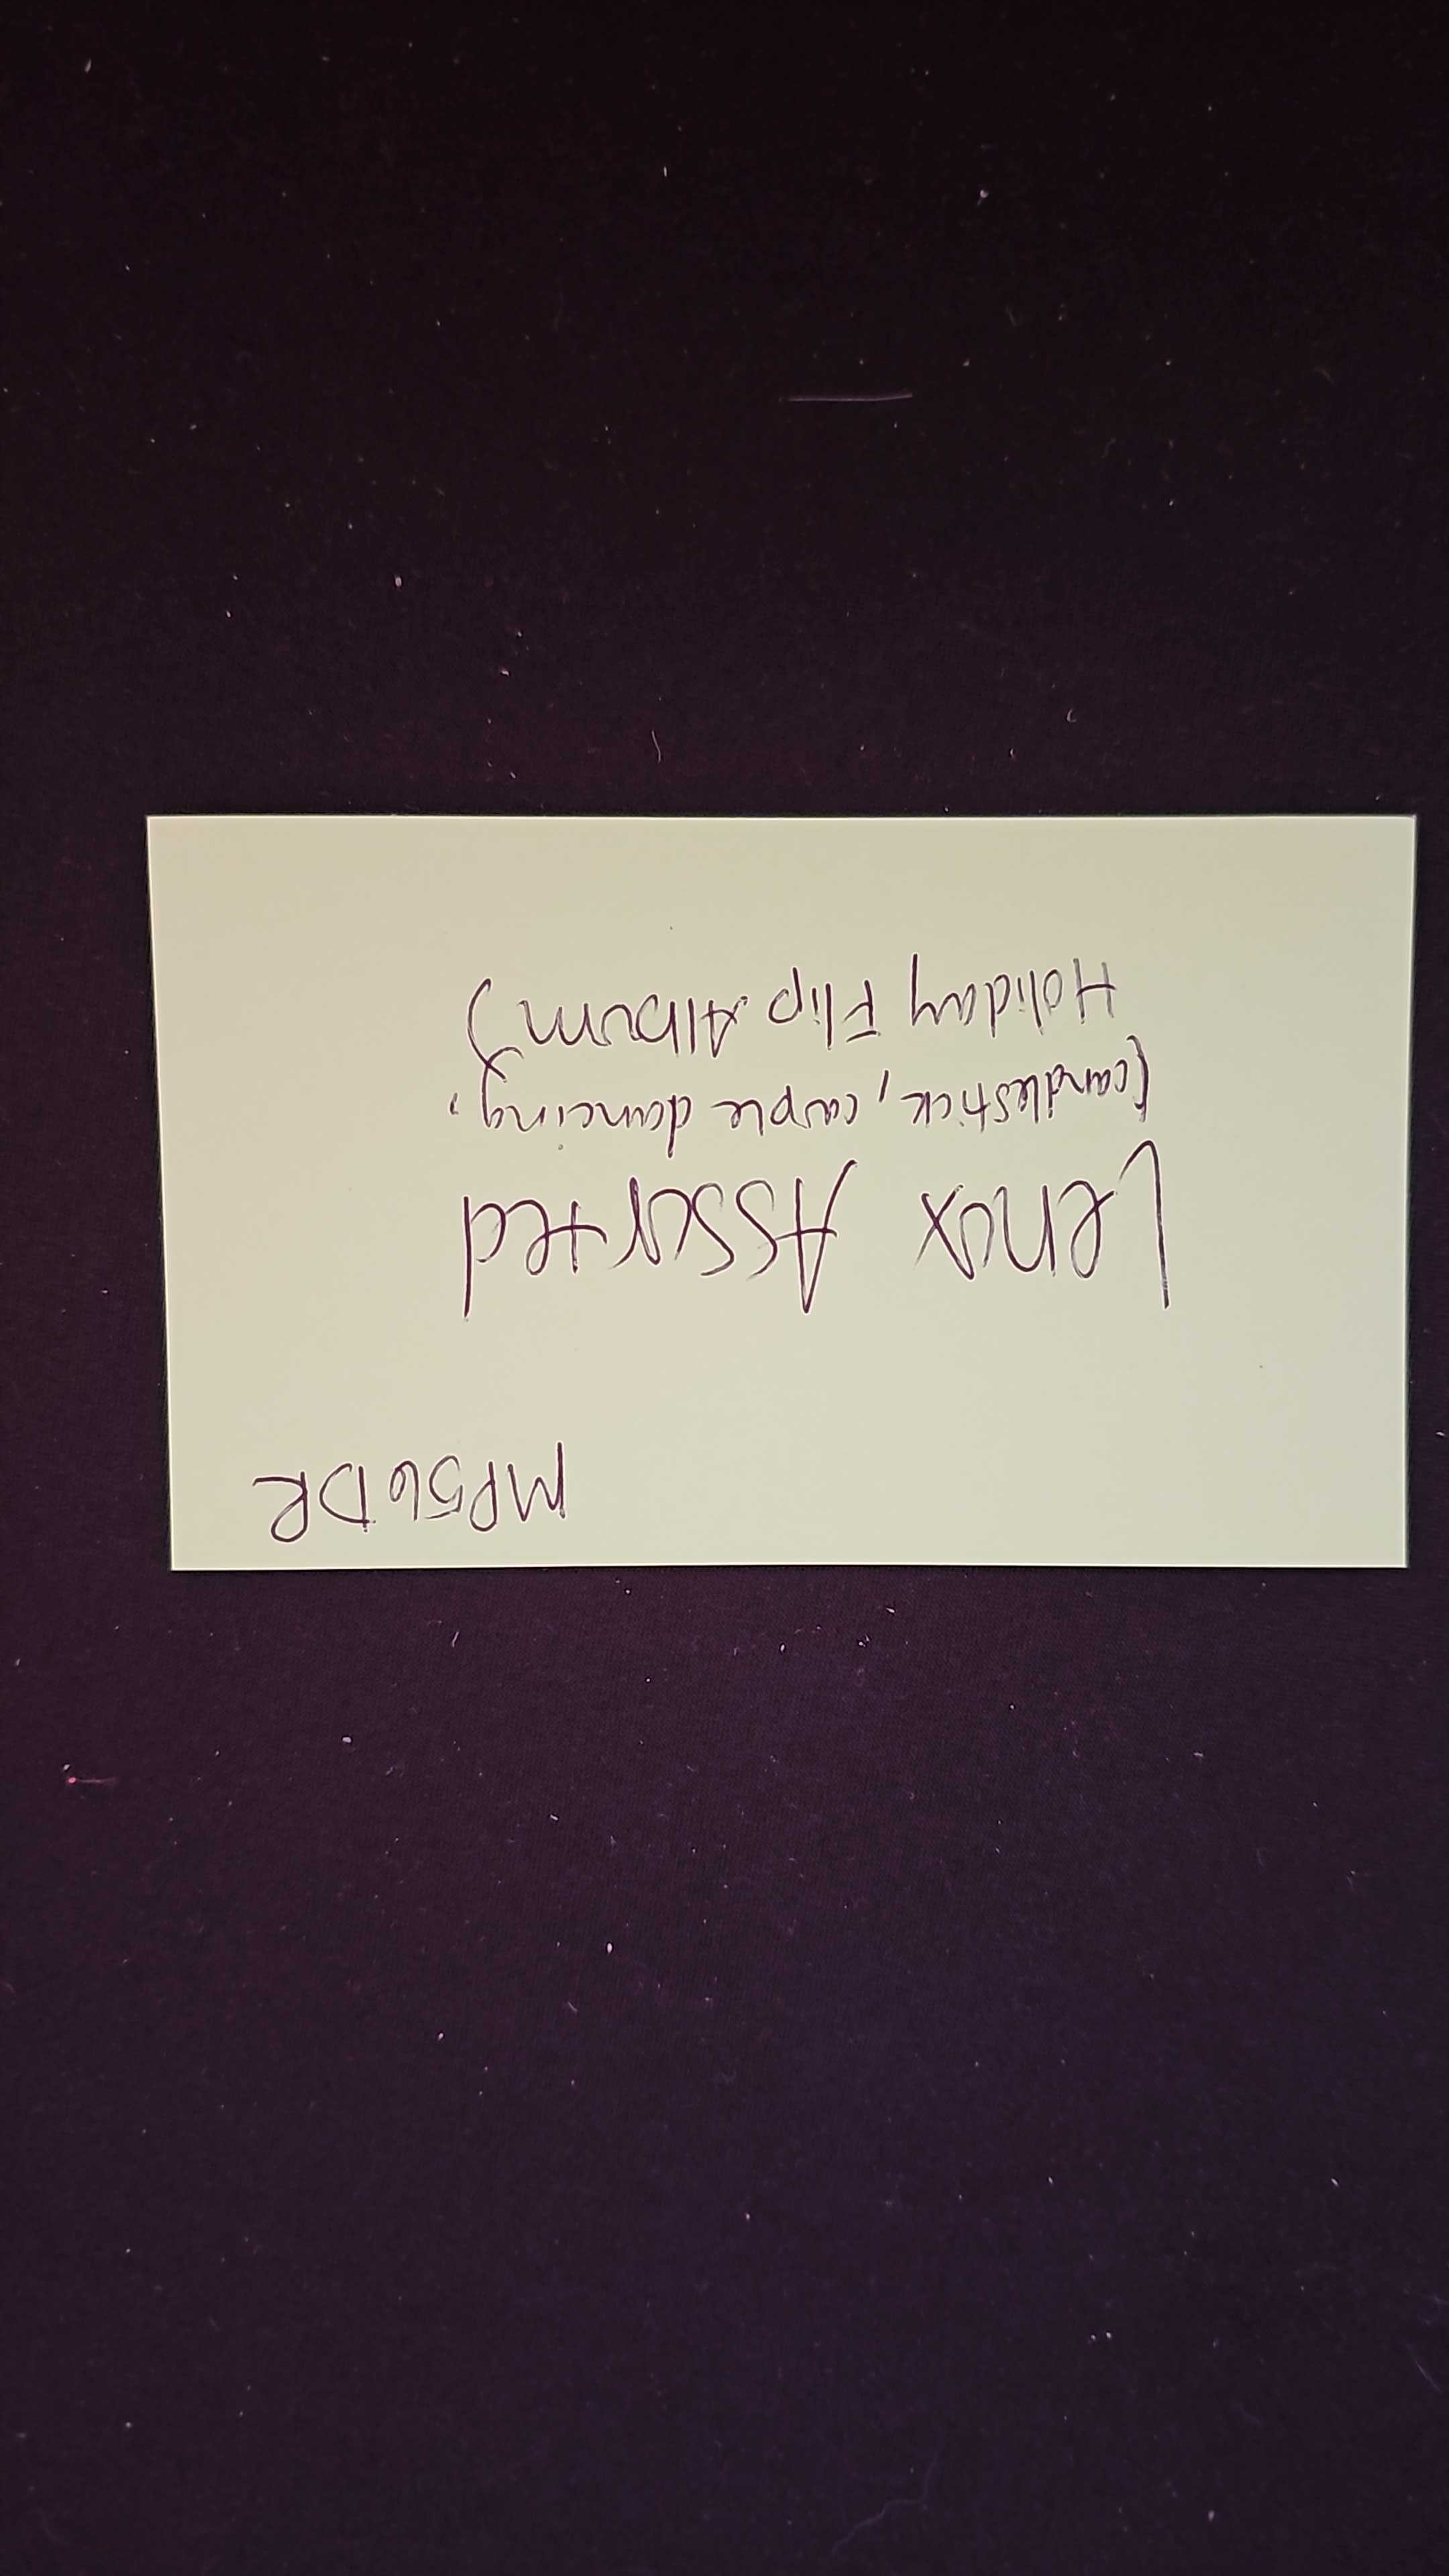 MP56DR
Lenox Assorted
(candlestick, couple dancing,
Holiday Flip Album)